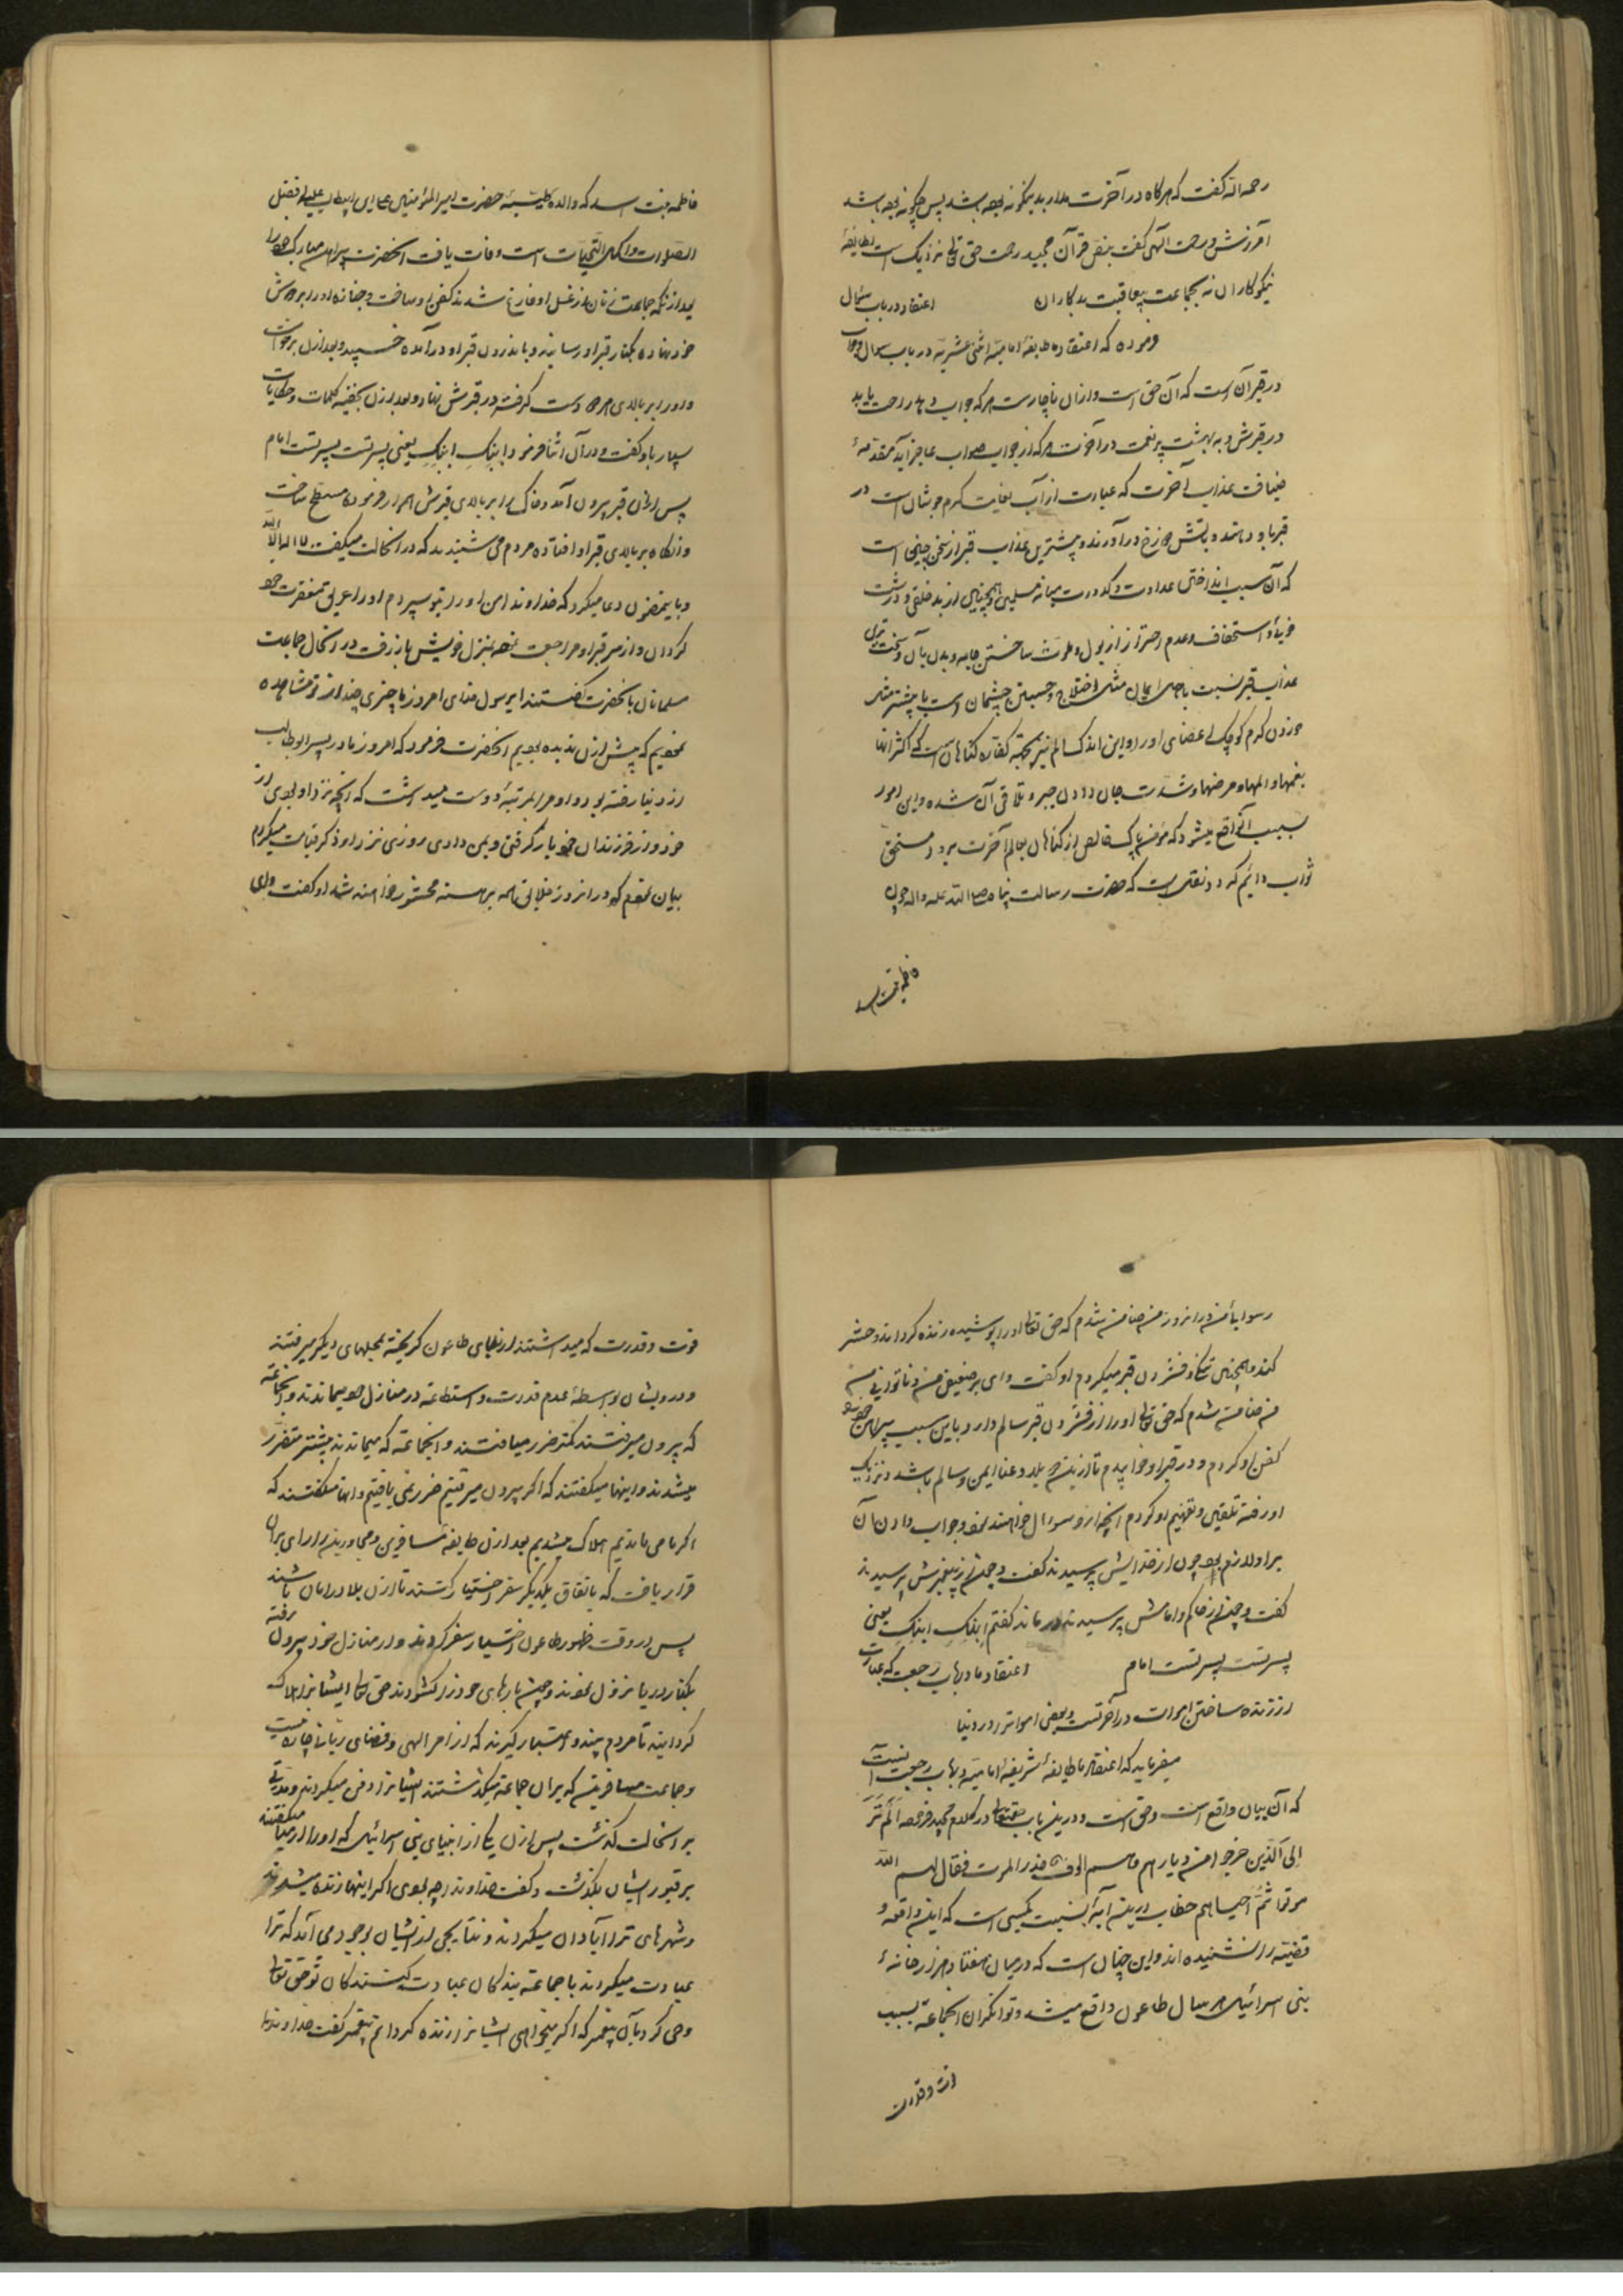 رحمه الله گفت که هرگاه در آخرت مدار بدینگونه بوده باشد پس چگونه بوده باشد
آمرزش و رحمت الهی گفت بنص قرآن مجید رحمت حق تعالی نزدیک است بطایفهٔ
نیکوکاران نه بجماعت بدکاران اعتقاد در باب سؤال
فرموده که اعتقاد ما طایفه امامیه اثنی عشریه در باب سؤال و جواب
در قبر آن است که آن حق است و از آن ناچارست هر که جواب دهد راحت یابد
در قبرش و به بهشت پر نعمت در آخرت و هر که از جواب صواب عاجز آید مقدمهٔ
ضیافت عذاب آخرت که عبارت از آب بغایت گرم جوشان است در
قبر باو دهند و بآتش دوزخ درآورند و بیشترین عذاب قبر از سخن چینی است
که آن سبب انداختن عداوت و کدورت میانه مسلمین و همچنین از بدخلقی و درشت
خوئی و استخفاف و عدم احتراز از بول و ملوث ساختن جامه و بدن بآن و سخت ترین
عذاب قبر نسبت باهل ایمان مثل اختلاج و جستن چشمان است یا بیشتر مثل
خوردن کرم کوچک اعضای او را و این اندک الم نیز بجهة کفاره گناهان است که اکثر آنها
بغمها و المها و مرضها و شدت جان دادن جبر و تلافی آن شده و این امور
سبب آن واقع میشود که مؤمن پاک و خالص از گناهان بعالم آخرت برود و مستحق
ثواب دائم گردد و نقل است که حضرت رسالت پناه صلی الله علیه و اله چون
فاطمه بنت اسد
فاطمه بنت اسد که والده حضرت امیر المؤمنین علی ابن ابیطالب علیه افضل
الصلوات و اکمل التحیات است وفات یافت آنحضرت پیراهن مبارک خود را
بعد از آنکه جماعت زنان از غسل او فارغ شدند کفن او ساخت و جنازه او را بر دوش
خود نهاده بکنار قبر او رسانید و باندرون قبر او درآمده خسپید و بعد از آن برخواست
و او را بر بالای هر دو دست گرفته در قبرش نهاد و بعد از آن کلمات و حکایات
بسیار باو گفت و در آن اثنا فرمود ابنک ابنک یعنی پسرتست پسرتست امام
پس از آن از قبر بیرون آمد و خاک را بر بالای قبرش هموار فرموده مسطح ساخت
و آنگاه بر بالای قبر او افتاده مردم می شنیدند که در آنحالت میگفت لا اله الا الله
و باینمضمون دعا میکرد که خداوندا من او را بتو سپردم او را غریق مغفرت خود
گردان و از سر قبر او مراجعت نموده بمنزل خویش باز رفت در آنحال جماعت
مسلمانان بآنحضرت گفتند ای رسول خدای امروز ما چیزی چند از تو مشاهده
نمودیم که پیش از آن ندیده بودیم آنحضرت فرمود که امروز مادر پسر ابوطالب
از دنیا رفته بود و او مرا بمرتبهٔ دوست میداشت که آنچه نزد او بودی از
خود و از فرزندان خود باز گرفتی و بمن دادی روزی نزد او ذکر قیامت میکردم
بیان نمودم که در آنروز خلایق همه برهنه محشور خواهند شد او گفت وای
رسوایا من در آنروز من ضامن شدم که حق تعالی او را پوشیده زنده گرداند و حشر
کند و همچنین تنگی و فشردن قبر میکردم او گفت وای بر ضعیفی من و ناتوانی من
من ضامن شدم که حق تعالی او را از فشردن قبر سالم دارد و باین سبب پیراهن خود را
کفن او کردم و در قبر او خوابیدم تا از این بلا و عنا ایمن و سالم باشد و نزدیک
او رفته تلقین و تفهیم او کردم آنچه از او سوال خواهند نمود و جواب دادن آن
بر او لازم بود چون از خدایش پرسیدند گفت و چون از پیغمبرش پرسیدند
گفت و چون از حاکم و امامش پرسیدند در ماند گفتم ابنک ابنک یعنی
پسرتست پسرتست امام اعتقاد ما در باب رجعت که عبارت
از زنده ساختن اموات در آخرتست و بعضی اموات را در دنیا
میفرماید که اعتقاد ما طایفهٔ شریفهٔ امامیه در باب رجعت آنست
که آن بیان واقع است و حق است و در این باب حقتعالی در کلام مجید فرموده الم تر
الی الذین خرجوا من دیارهم و هم الوف حذر الموت فقال لهم الله
موتوا ثم احیاهم خطاب در این آیه نسبت بکسی است که این واقعه و
قضیه را نشنیده اند و این چنان است که در میان هفتاد هزار خانهٔ
بنی اسرائیل هر سال طاعون واقع میشد و توانگران آنجماعة بسبب
قوت و قدرت
قوت و قدرت که میداشتند از بلای طاعون گریخته بمحلهای دیگر میرفتند
و درویشان بواسطهٔ عدم قدرت و استطاعة در منازل خود میماندند و آنجماعة
که بیرون میرفتند کمتر ضرر میافتند و آنجماعة که میماندند بیشتر متضرر
میشدند و اینها میگفتند که اگر بیرون میرفتیم ضرر نمی یافتیم و آنها میگفتند که
اگر ما می ماندیم هلاک میشدیم بعد از آن طایفهٔ مسافرین و مجاورین را رای بر آن
قرار یافت که باتفاق یکدیگر سفر اختیار کنند تا از آن بلا در امان باشند
پس در وقت ظهور طاعون اختیار سفر کردند و از منازل خود بیرون رفته
بکنار دریا نزول نمودند و چون بارهای خود را گشودند حق تعالی ایشانرا هلاک
گردانید تا مردم پند و اعتبار گیرند که از امر الهی و قضای ربانی چاره نیست
و جماعت مسافرین که بر آن جماعة میگذشتند ایشانرا دفن میکردند و مدتی
بر آنحالت گذشت پس از آن یکی از انبیای بنی اسرائیل که او را ارمیا میگفتند
بر قبور ایشان بگذشت و گفت خداوندا چه بودی اگر اینها زنده میشدند
و شهرهای ترا آبادان میکردند و نتایجی از ایشان بوجود می آمد که ترا
عبادت میکردند با جماعة بندگان عبادت کنندگان تو حق تعالی
وحی کرد بآن پیغمبر که اگر میخواهی ایشانرا زنده گردانم پیغمبر گفت خداوندا